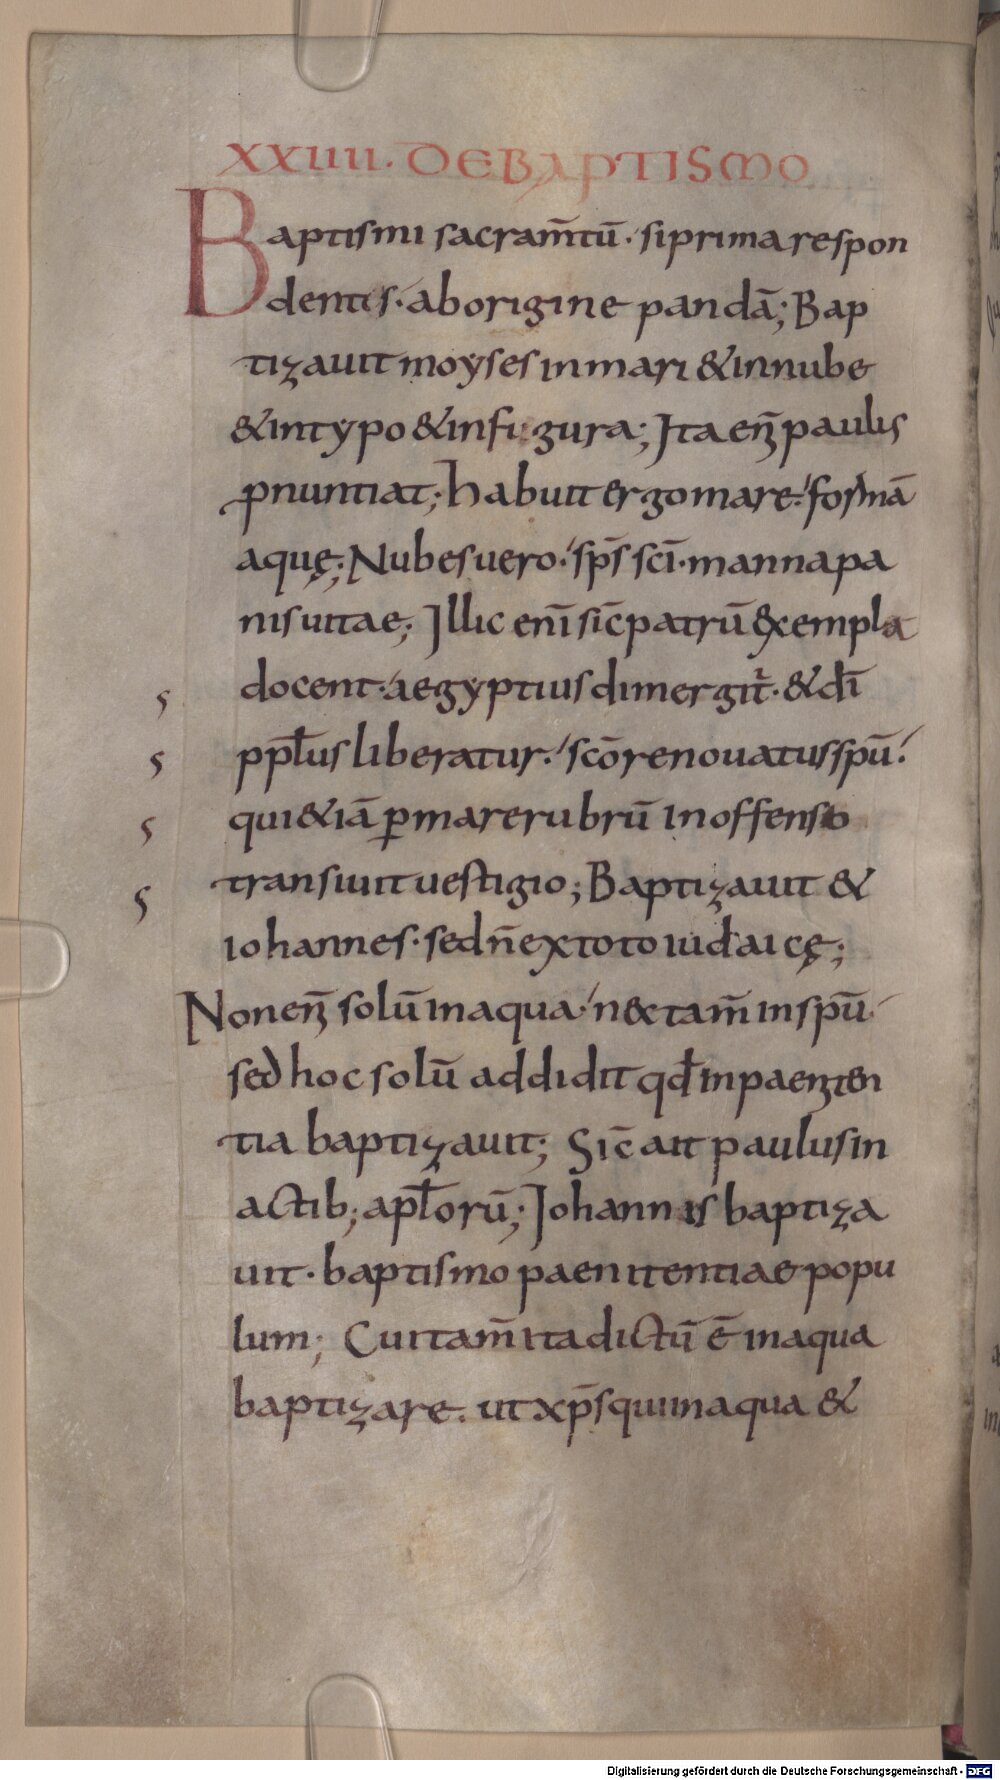 XXIIII. DE BAPTISMO
Baptismi sacram̄tū· si prima respon
dentis· ab origine pandā; Bap
tizauit moyses in mari & in nube
& in typo & in figura; Ita eñ paulis
ꝓnuntiat; habuit ergo mare· formā
aquę; Nubes uero· sp̄s sc̄i· manna pa
nis uitae; Illic enī sic̄ patrū exempla
docent· aegyptius dimergit̄· & dī
ppl̄us liberatur· sc̄o renouatus spū·
qui &iā ꝑ mare rubrū inoffenso
transiuit uestigio; Baptizauit &
iohannes· sed n̄ ex toto iudaicę;
Non eñ solū in aqua· n& tam̄ in spū·
sed hoc solū addidit qd̄ in paeniten
tia baptizauit; Sic̄ ait paulus in
actib; apl̄orū; Iohannis baptiza
uit· baptismo paenitentiae popu
lum; Cui tam̄ ita dictū ē in aqua
baptizare. ut xp̄s qui in aqua &
Digitalisierung gefördert durch die Deutsche Forschungsgemeinschaft - DFG